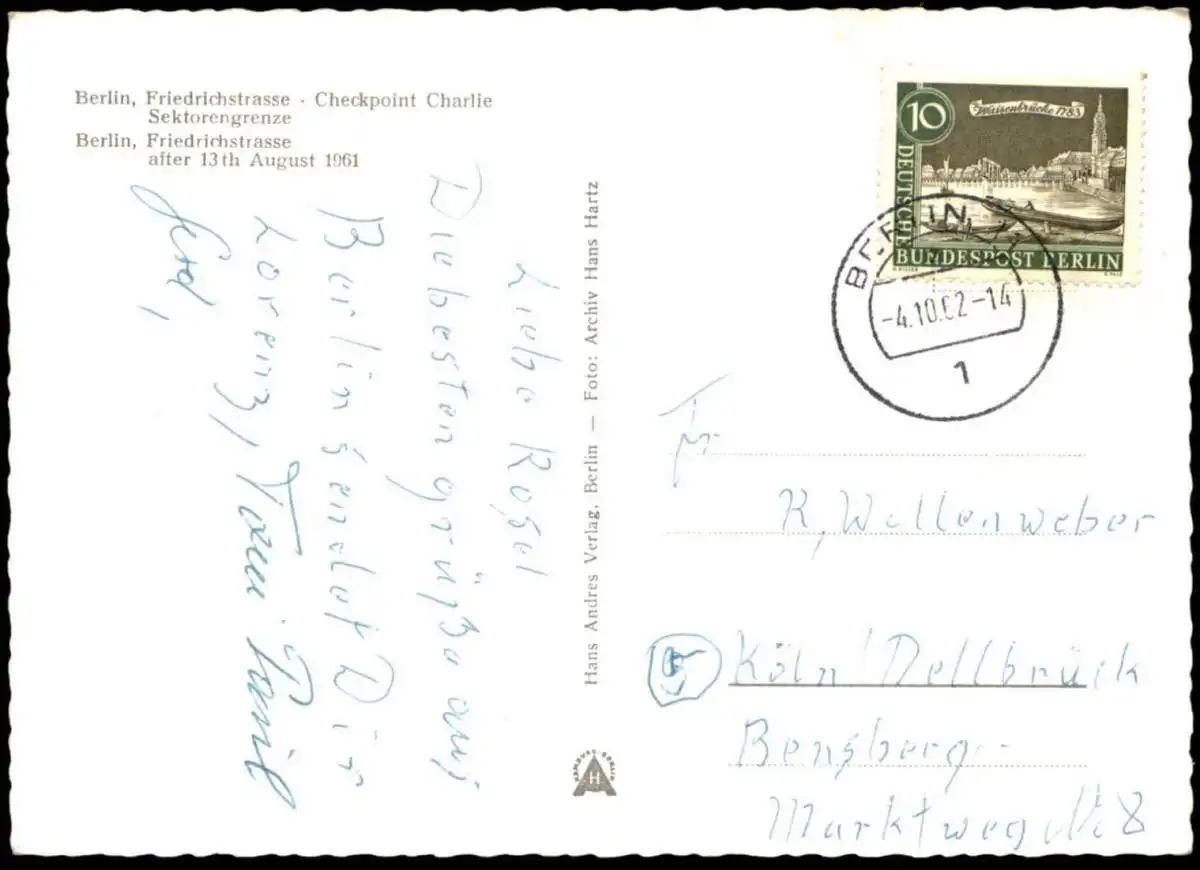 Berlin, Friedrichstrasse · Checkpoint Charlie
Sektorengrenze
Berlin, Friedrichstrasse
after 13th August 1961
Liebe Rosel
Die besten grüße aus
Berlin sendet Dir
Lorenz,
Gerd,
Hans Andres Verlag, Berlin — Foto: Archiv Hans Hartz
HAMBURG-BERLIN
H
Waisenbrücke 1783
10
DEUTSCHE
BUNDESPOST BERLIN
BERLIN 11
-4.10.62-14
1
Fr
K, Wellenweber
Köln/Dellbrück
Bensberger-
Marktweg 8